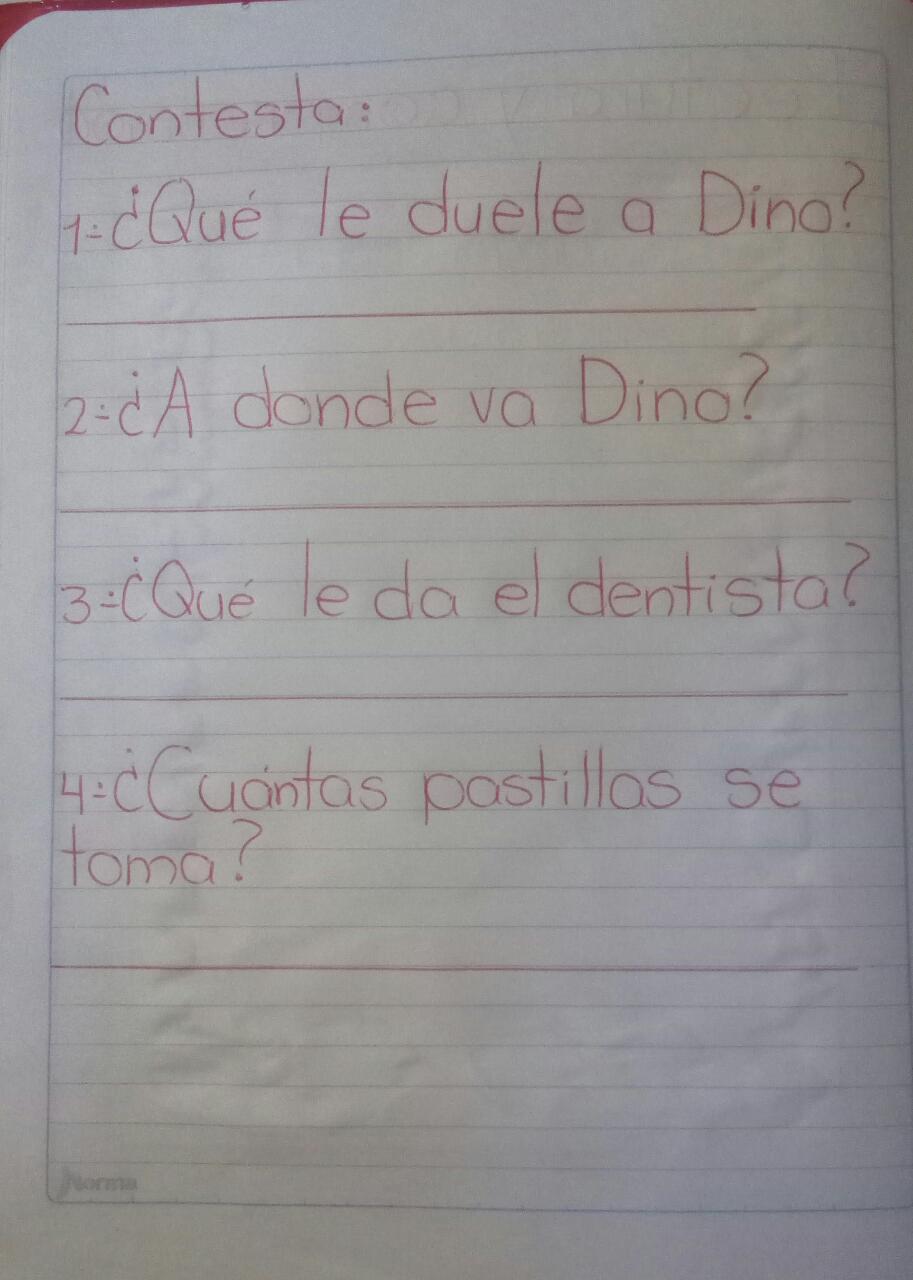 Contesta:
1=¿Qué le duele a Dino?
2=¿A donde va Dino?
3=¿Qué le da el dentista?
4=¿Cuántas pastillas se
toma?
Norma